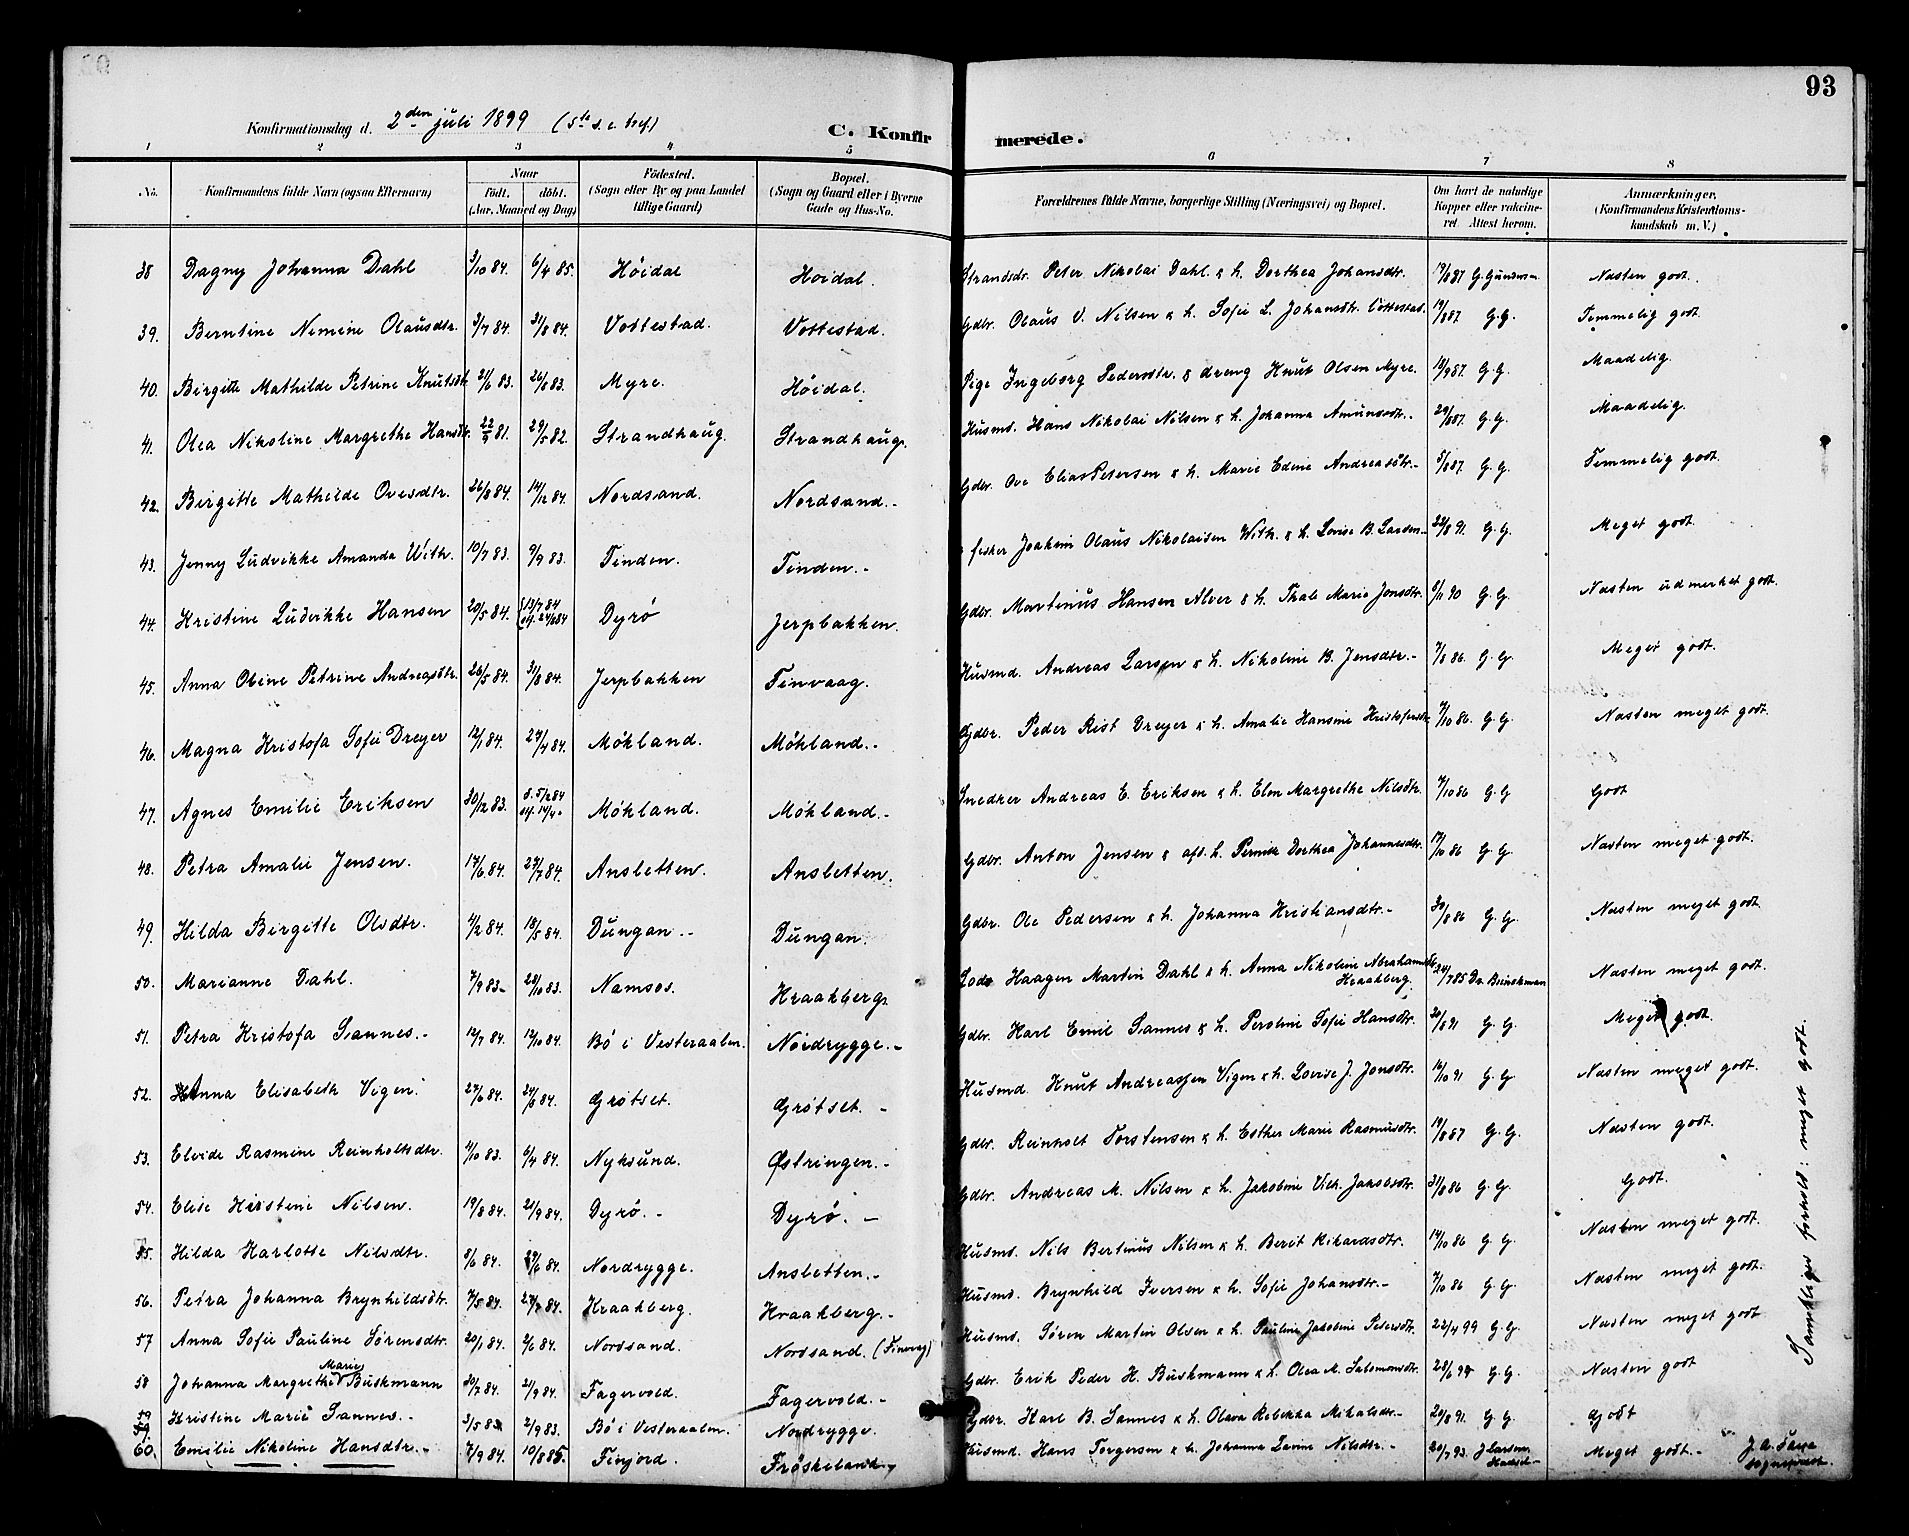 93
Konfirmationsdag d. 2den juli 1899 (5te s. e. tref.) C. Konfirmerede.
1 2 3 4 5 6 7 8
No. Konfirmandens fulde Navn (ogsaa Efternavn) Naar født. døbt. (Aar, Maaned og Dag) Fødested. (Sogn eller By og paa Landet tillige Gaard) Bopæl. (Sogn og Gaard eller i Byerne Gade og Hus-No. Forældrenes fulde Navne, borgerlige Stilling (Næringsvei) og Bopæl. Om havt de naturlige Kopper eller vakcineret. Attest herom. Anmærkninger. (Konfirmandens Kristendomskundskab m. V.)
38 Dagny Johanna Dahl 3/10 84. 6/4 85. Höidal Höidal. Strandsdr. Peter Nikolai Dahl & h. Dorthea Johansdtr. 19/8 87 G. Gundersen Næsten godt.
39. Berntine Nemine Olausdtr. 3/7 84. 31/8 84. Vottestad. Vottestad. Gdbr. Olaus V. Nilsen & h. Sofie L. Johansdtr. Vottestad. 19/8 87 G. G. Temmelig godt
40. Birgitte Mathilde Petrine Knutsdtr. 21/6 83. 26/8 83. Myre. Höidal. Pige Ingeborg Pedersdtr. & dreng Knut Olsen Myre. 18/9 87. G. G. Maadelig.
41. Olea Nikoline Margrethe Hansdtr. 22/9 81. 29/5 82. Strandhaug. Strandhaug. Husmd. Hans Nikolai Nilsen & h. Johanna Amundsdtr. 20/8 87. G. G. Maadelig.
42. Birgitte Mathilde Ovesdtr. 26/8 84. 14/12 84. Nordsand. Nordsand. Gdbr. Ove Elias Petersen & h. Marie Edine Andreasdtr. 5/8 87. G. G. Temmelig godt.
43. Jenny Ludvikke Amanda With. 10/7 83. 9/9 83. Tinden. Tinden. fisker Joakim Olaus Nikolaisen With. & h. Lovise B. Larsen 22/8 91. G. G. Meget godt.
44. Kristine Ludvikke Hansen 20/5 84. 13/7 84 24/8 84 Dyrö Jerpbakken. Gdbr. Martinus Hansen Alver & h. Thale Marie Jonsdtr. 8/11 90 G. G. Næsten udmerket godt.
45. Anna Oline Petrine Andreasdtr. 26/5 84. 31/8 84. Jerpbakken Tinvaag. Husmd. Andreas Larsen & h. Nikoline B. Jensdtr. 7/8 86. G. G. Meget godt.
46. Magna Kristofa Sofie Dreyer 12/1 84. 27/4 84. Mökland. Mökland. Gdbr. Peder Rist Dreyer & h. Amalie Hansine Kristofersdtr. 7/10 86. G. G. Næsten meget godt.
47. Agnes Emilie Eriksen 30/12 83. 5/2 84 14/4 Mökland. Mökland. Snedker Andreas E. Eriksen & h. Elen Margrethe Nilsdtr. 7/10 86 G. G Godt
48. Petra Amalie Jensen. 17/6 84. 27/7 84. Ansletten. Ansletten. Gdbr. Anton Jensen & afd. h. Pernille Dorthea Johannesdtr. 17/10 86 G. G. Næsten meget godt.
49. Hilda Birgitte Olsdtr. 4/2 84. 18/5 84. Dungan. Dungan. Gdbr. Ole Pedersen & h. Johanna Kristiansdtr. 30/8 86 G. G. Næsten meget godt
50. Marianne Dahl. 7/9 83 28/10 83. Namsos. Kraakberg. Lods Haagen Martin Dahl & h. Anna Nikoline Abrahamsdtr. Kraakberg. 24/7 85 Næsten meget godt.
51. Petra Kristofa Sannes. 12/7 84. 12/10 84. Bö i Vesteraalen. Nordrygge. Gdbr. Karl Emil Sannes & h. Peroline Sofie Hansdtr. 20/8 91 G. G. Meget godt.
52. Anna Elisabeth Vigen. 27/6 84. 24/8 84. Grötset. Grötset. Husmd. Knut Andreassen Vigen & h. Lovise J. Jonsdtr. 16/10 91 G. G. Næsten meget godt.
53. Elvide Rasmine Reinholtsdtr. 4/10 83. 6/4 84. Nyksund. Østringen. Gdbr. Reinholt Torstensen & h. Esther Marie Rasmusdtr. 19/8 87 G. G. Næsten godt.
54. Elise Kirstine Nilsen. 19/8 84. 21/9 84. Dyrö. Dyrö. Gdbr. Andreas M. Nilsen & h. Jakobine Vilh. Jakobsdtr. 31/8 86 G. G. Godt.
55. Hilda Karlotte Nilsdtr. 8/6 84. 29/6 84. Nordrygge. Ansletten. Husmd. Nils Bertinus Nilsen & h. Berit Rikardsdtr. 14/10 86 G. G. Næsten meget godt.
56. Petra Johanna Brynhildsdtr. 7/5 84. 27/7 84. Kraakberg. Kraakberg. Husmd. Brynhild Iversen & h. Sofie Johansdtr. 7/10 86 G. G. Næsten meget godt.
57 Anna Sofie Pauline Sörensdtr. 20/1 84. 2/6 84. Nordsand. Nordsand. (Tinvåg) Husmd. Sören Martin Olsen & h. Pauline Jakobine Pedersdtr. 22/4 99 G. G. Næsten meget godt
58 Johanna Margrethe Marie Buskmann 30/7 84. 21/9 84. Fagervold. Fagervold. Gdbr. Erik Peder H. Buskmann & h. Olea M. Salomonsdtr. 28/6 94 G. G. Næsten godt
59. Kristine Marie Sannes. 3/5 83 2/9 83. Bö i Vesteraalen. Nordrygge. Gdbr. Karl B. Sannes & h. Olava Rebekka Mikalsdtr. 20/8 91. G. G. Godt
60. Emilie Nikoline Hansdtr. 7/9 84. 10/8 85. Finjord. Fröskeland. Husmd. Hans Torgersen & h. Johanna Lavine Nilsdtr. 20/7 93. J Larsen Hadsel Meget godt.
Samtliges forhold: meget godt.